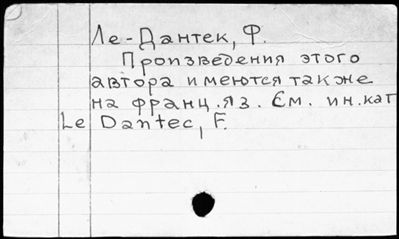 Ле-Дантек, Ф.
Произведения этого
автора имеются также
на франц. яз. См. ин. кат
Le Dantec, F.